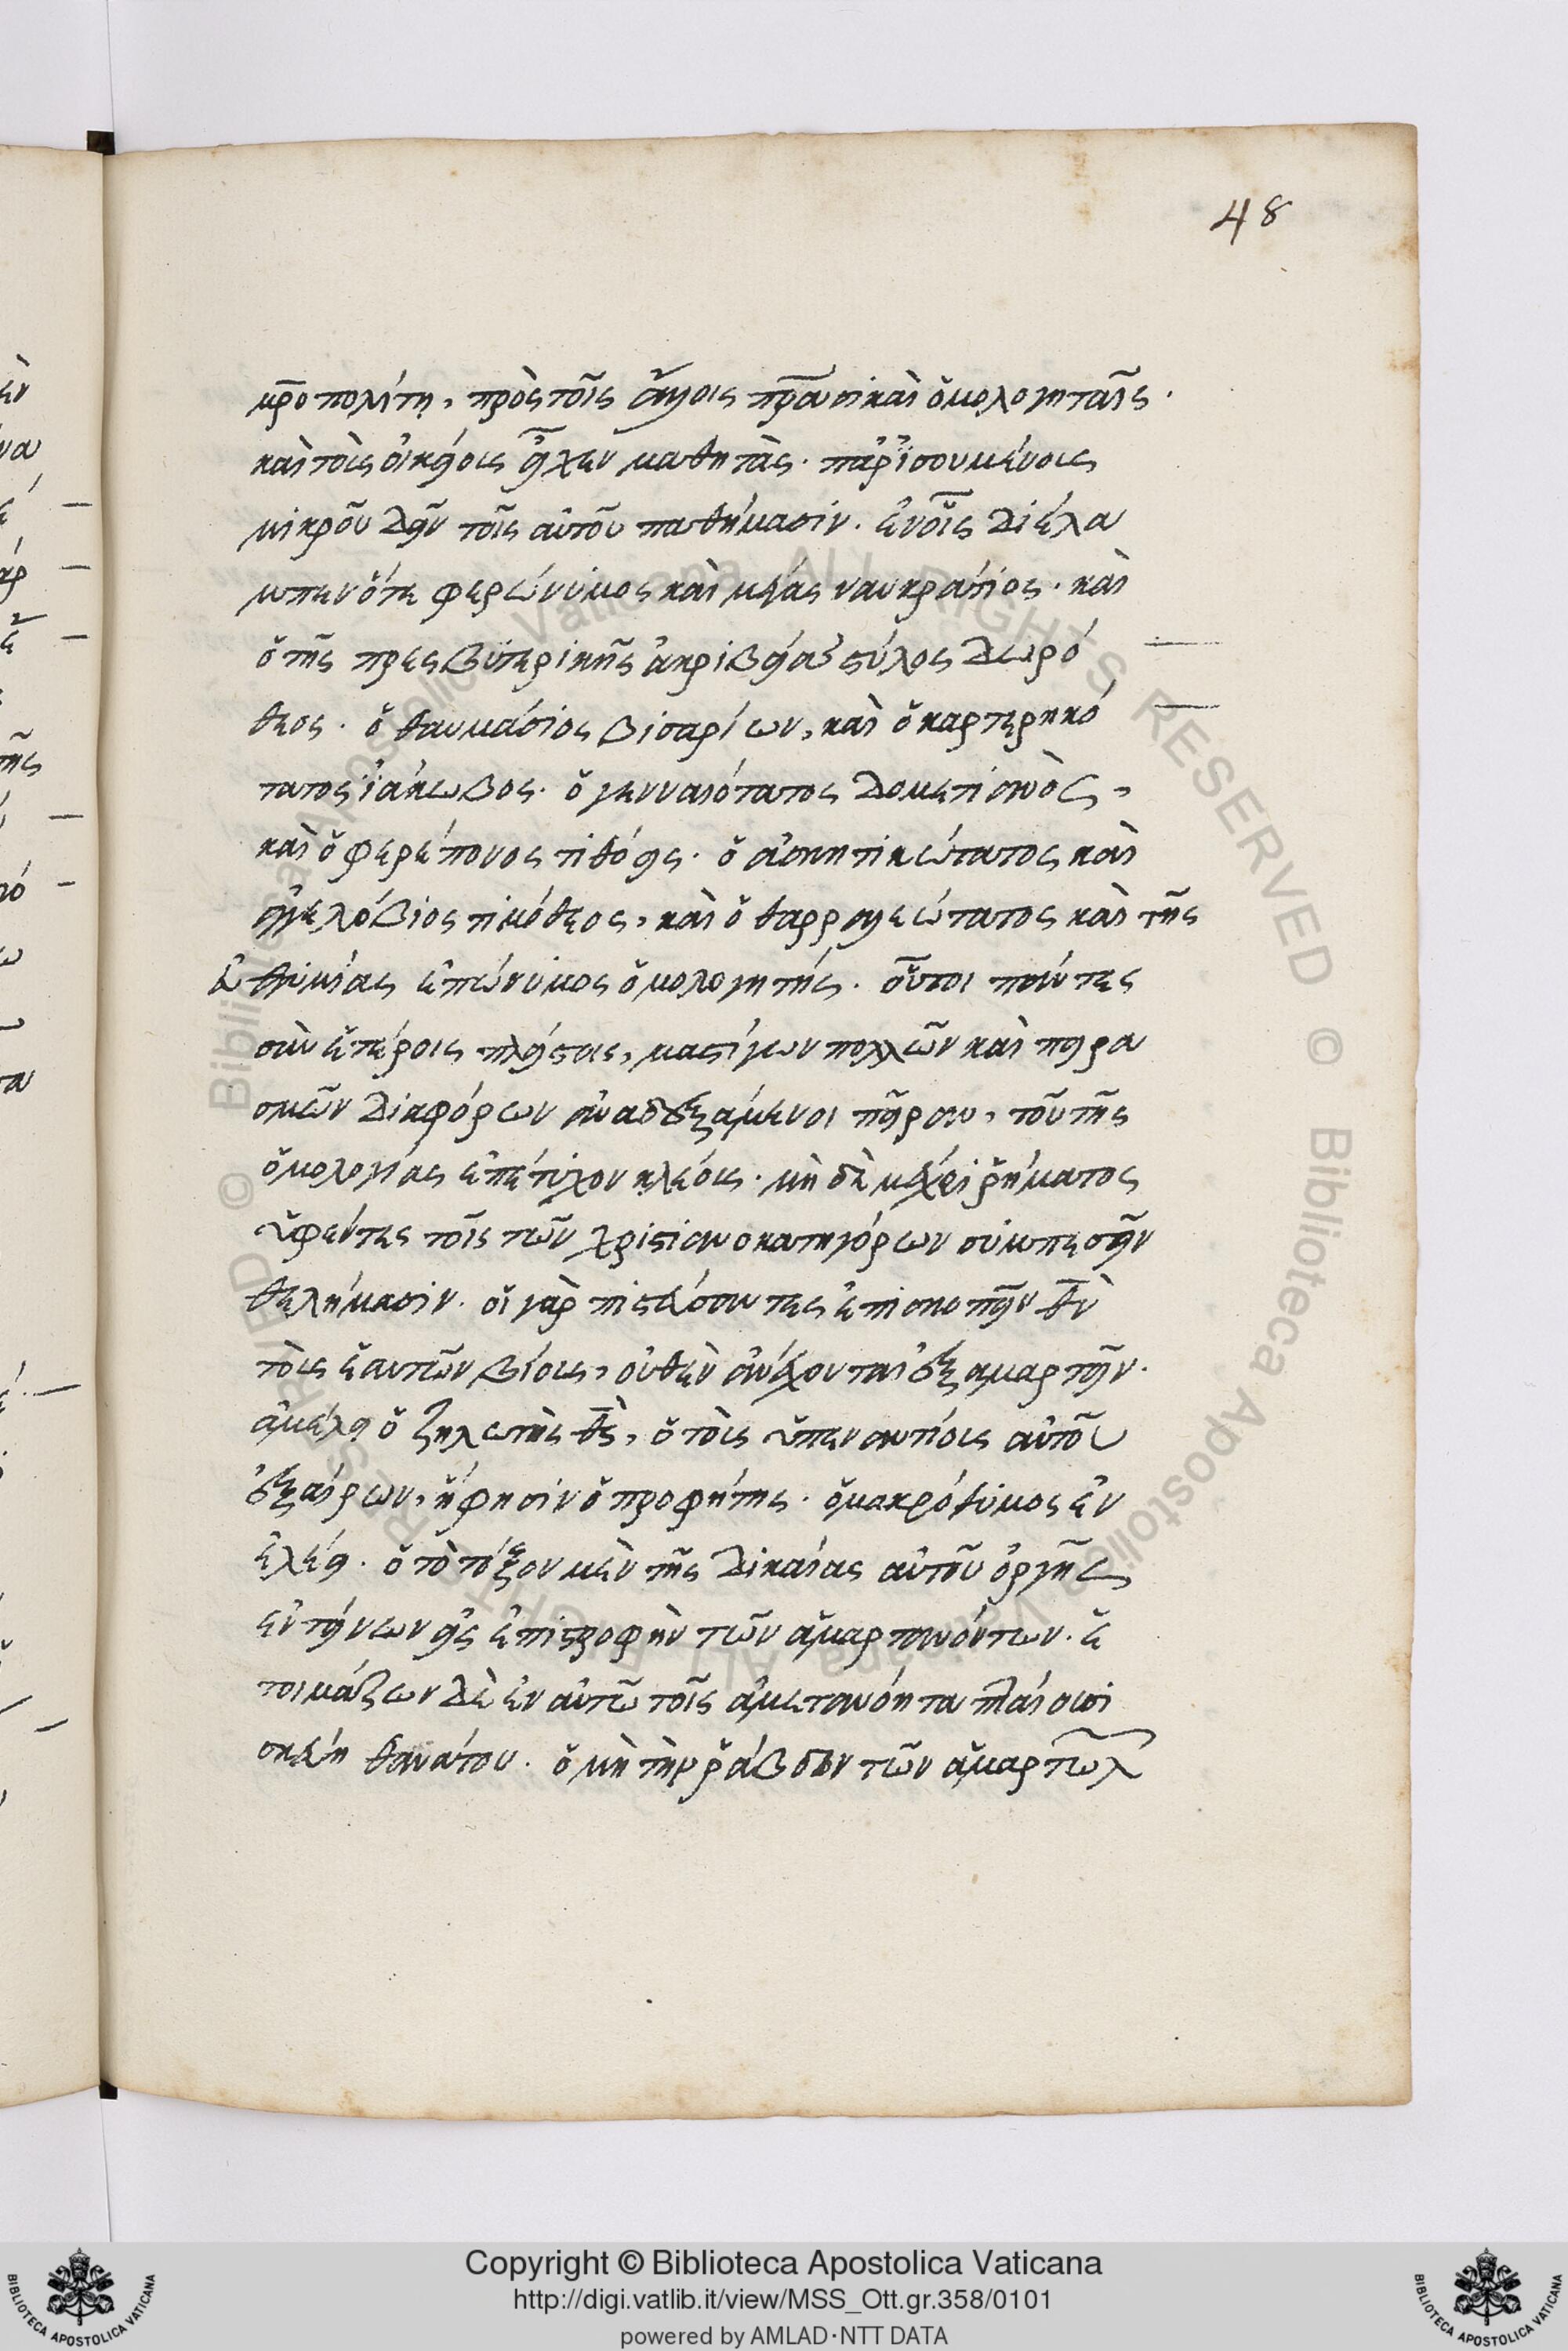 48
μρ̅οπολίτη, πρὸς τοῖς ἁγίοις πρ̅ασι καὶ ὁμολογηταῖς.
καὶ τοῖς οἰκείοις εἶχεν μαθητὰς. παρισουμένοις
μικροῦ δεῖν τοῖς αὐτοῦ παθήμασιν. ἐν οἷς διέλα
μπεν ὅτε φερώνυμος καὶ μέγας ναυκράτιος. καὶ
ὁ τῆς πρεσβυτερικῆς ἀκριβείας στύλος δωρό
θεος. ὁ θαυμάσιος βισαρίων, καὶ ὁ καρτερικό
τατος ἰάκωβος. ὁ γενναιότατος δομετιανὸς,
καὶ ὁ φερέπονος τιθόεις. ὁ ἀσκητικώτατος καὶ
ἀγγελόβιος τιμόθεος, καὶ ὁ θαρραλεώτατος καὶ τῆς
εὐθυμίας ἐπώνυμος ὁμολογητής. οὗτοι πάντες
σὺν ἑτέροις πλείστοις, μαστίγων πολλῶν καὶ πειρα
σμῶν διαφόρων ἀναδεξάμενοι πεῖραν, τοῦ τῆς
ὁμολογίας ἐπέτυχον κλέους. μὴ δὲ μέχρι ῥήματος
ὑφέντες τοῖς τῶν χριστιανοκατηγόρων συμπεσεῖν
θελήμασιν. οἱ γὰρ πιστεύσαντες ἐπισκοπεῖν θ̅ν
τοὺς ἑαυτῶν βίους, οὐθὲν ἀνέχονται ἐξαμαρτεῖν.
ἀμέλει ὁ ζηλωτὴς θ̅ς, ὁ τοὺς ὑπεναντίους αὐτοῦ
ἐξαίρων, ᾗ φησὶν ὁ προφήτης. ὁ μακρόθυμος ἐν
ἐλέει. ὁ τὸ τόξον μὲν τῆς δικαίας αὐτοῦ ὀργῆς
ἐντείνων εἰς ἐπιστροφὴν τῶν ἁμαρτανόντων. ἑ
τοιμάζων δὲ ἐν αὐτῶ τοῖς ἀμετανόητα πλαίουσι
σκεύη θανάτου. ὁ μὴ τὴν ῥάβδον τῶν ἁμαρτωλ
Copyright © Biblioteca Apostolica Vaticana
http://digi.vatlib.it/view/MSS_Ott.gr.358/0101
powered by AMLAD·NTT DATA